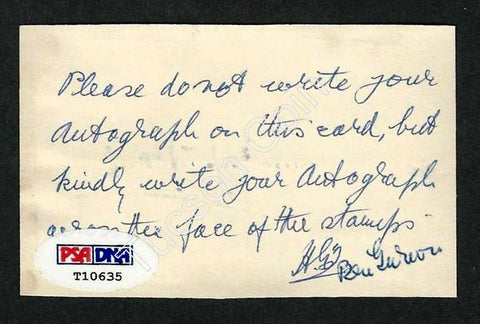 Please do not write your
autograph on this card, but
kindly write your autograph
across the face of the stamps -
Ben Gurion
PSA DNA
T10635